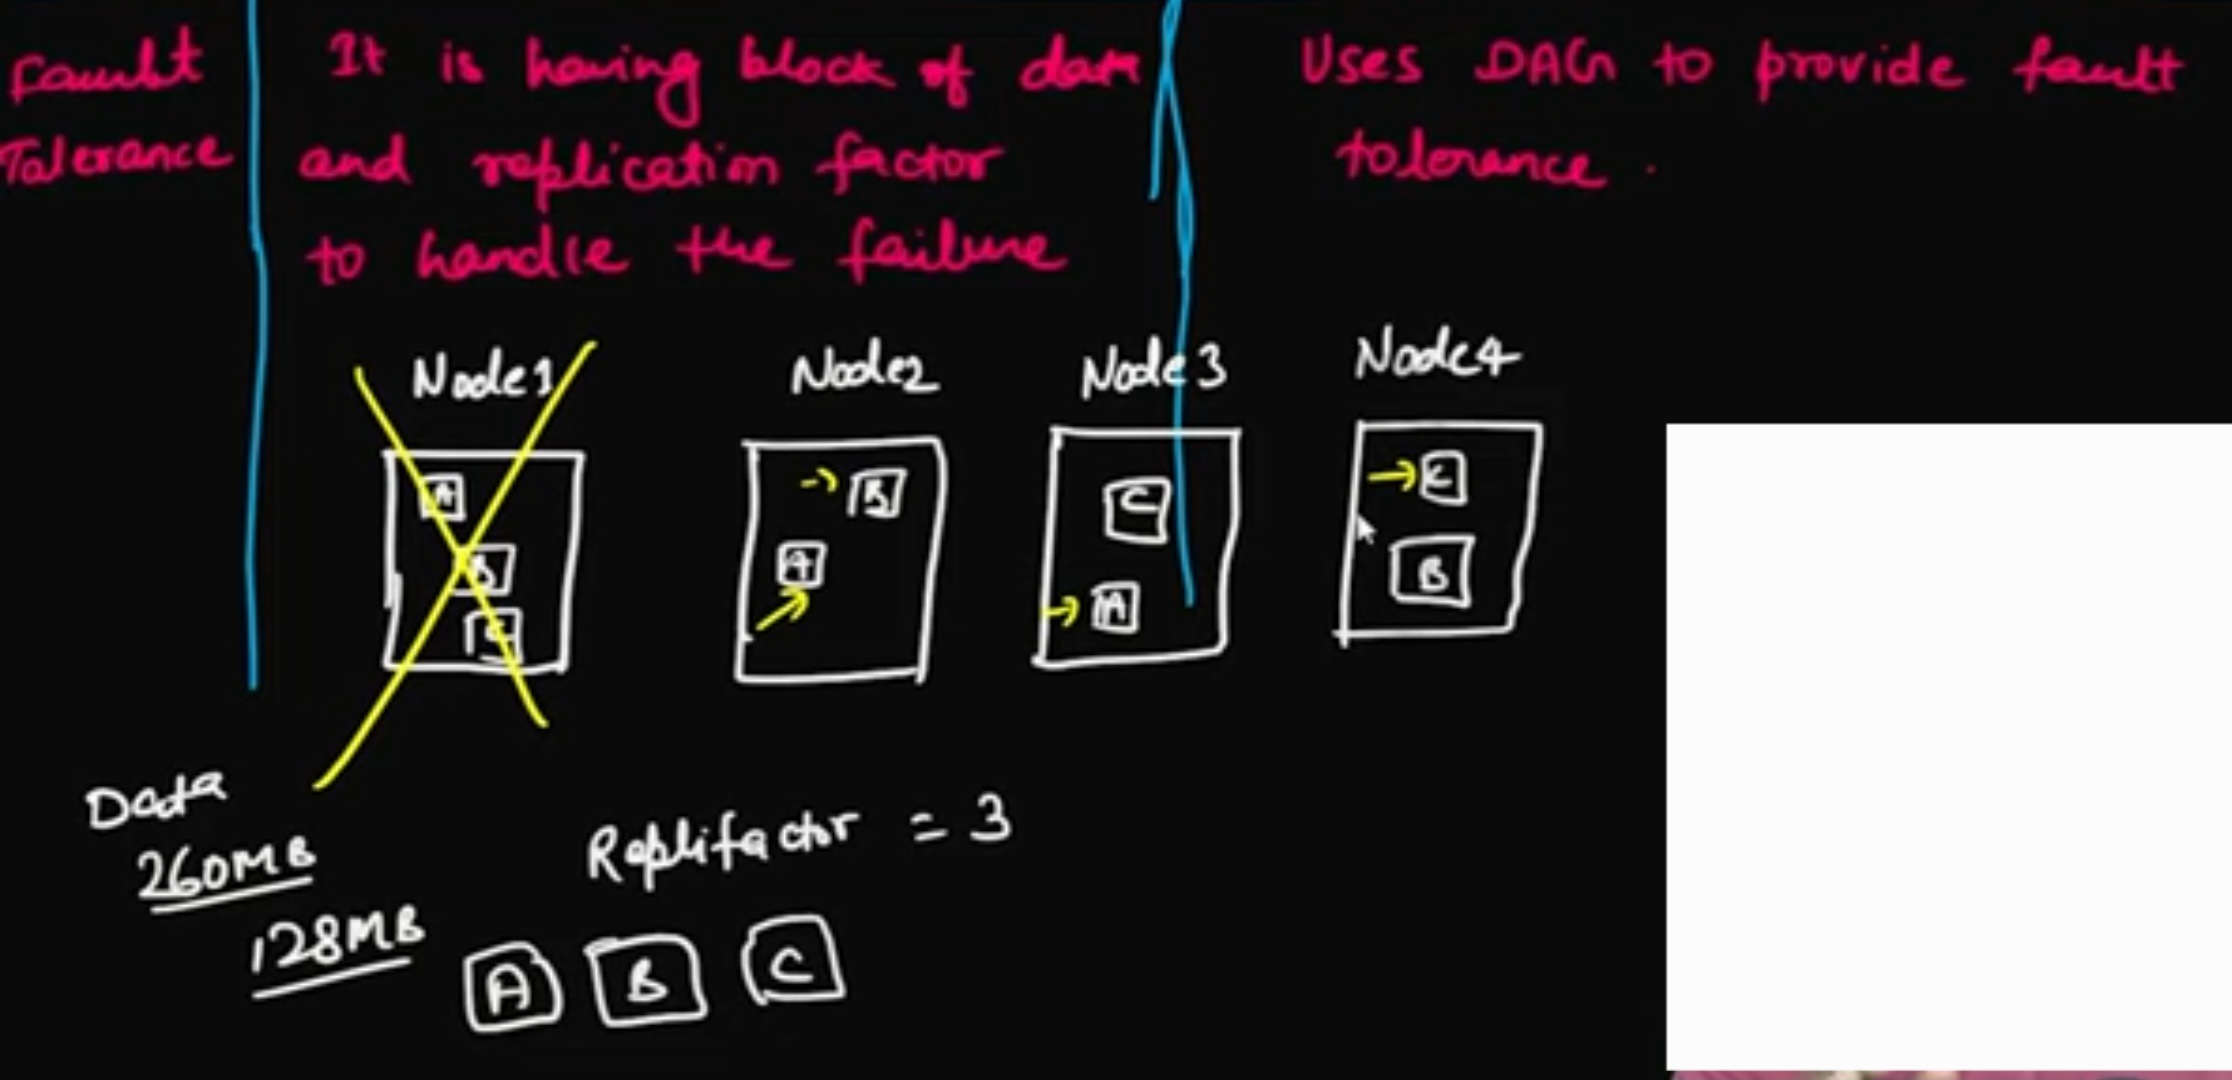 Fault
Tolerance
It is having block of data
and replication factor
to handle the failure
Uses DAG to provide fault
tolerance .
Node1
Node2
Node3
Node4
A
B
C
B
A
C
A
C
B
Data
260MB
128MB
Replifactor = 3
A B C